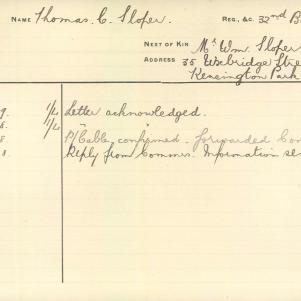 NAME Thomas. C. Sloper. REG., &C. 32nd B
NEXT OF KIN Mr Wm. Sloper
ADDRESS 35 Uxbridge Stre
Kensington Park
9. 1/- Letter acknowledged.
8. 1/- "
8 P/Cable confirmed - forwarded Com
8 Reply from Commrs. Information se